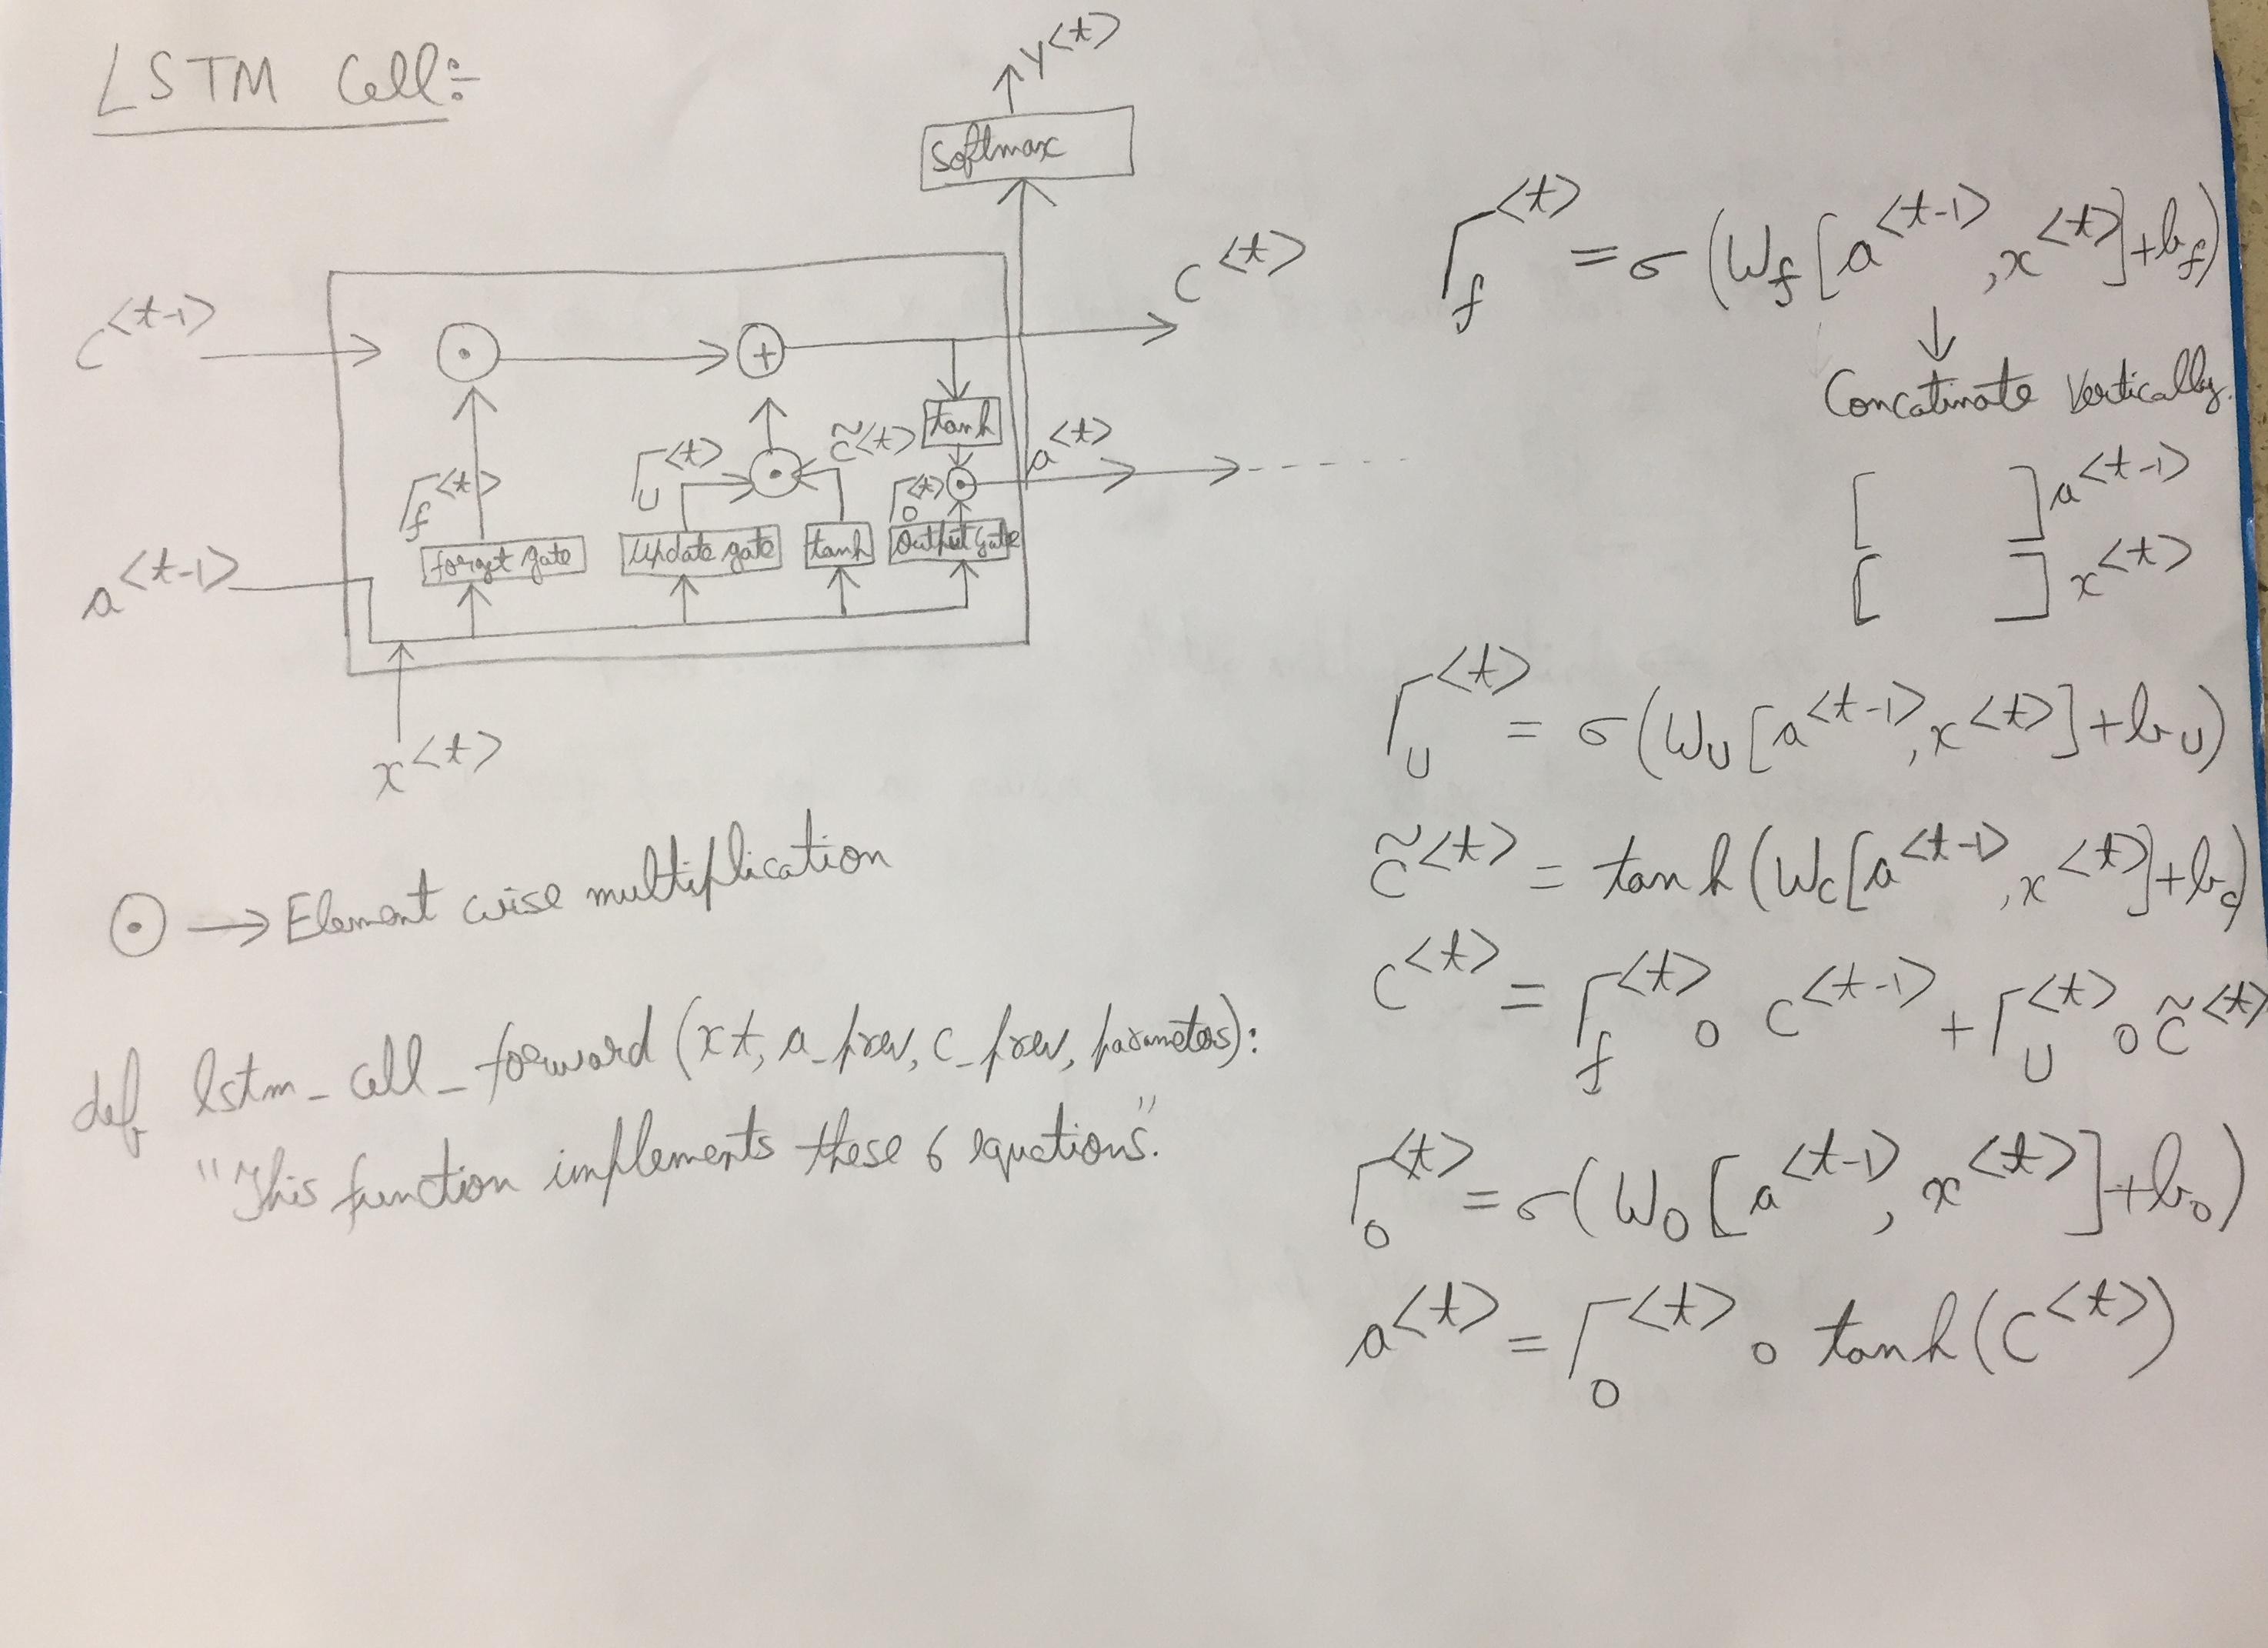 LSTM Cell:-
y<t>
Softmax
c<t>
c<t-1>
tanh
Γf<t>
Γu<t>
c̃<t>
Γo<t>
a<t>
forget gate
Update gate
tanh
Output Gate
a<t-1>
x<t>
⊙ → Element wise multiplication
def lstm_cell_forward (xt, a_prev, c_prev, parameters):
"This function implements these 6 equations."
Γf<t> = σ(Wf[a<t-1>, x<t>]+bf)
↓
Concatinate Vertically.
[ ] a<t-1>
[ ] x<t>
Γu<t> = σ(Wu[a<t-1>, x<t>]+bu)
c̃<t> = tanh(Wc[a<t-1>, x<t>]+bc)
c<t> = Γf<t> o c<t-1> + Γu<t> o c̃<t>
Γo<t> = σ(Wo[a<t-1>, x<t>]+bo)
a<t> = Γo<t> o tanh(c<t>)